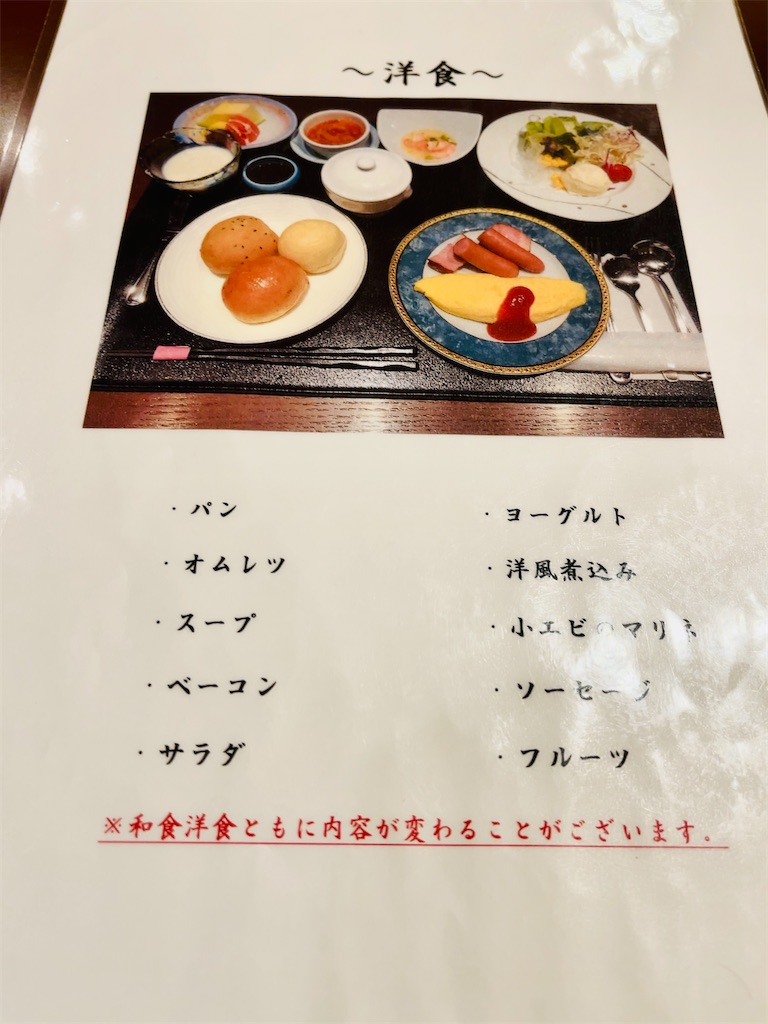 ～洋食～
・パン
・オムレツ
・スープ
・ベーコン
・サラダ
・ヨーグルト
・洋風煮込み
・小エビのマリネ
・ソーセージ
・フルーツ
※和食洋食ともに内容が変わることがございます。